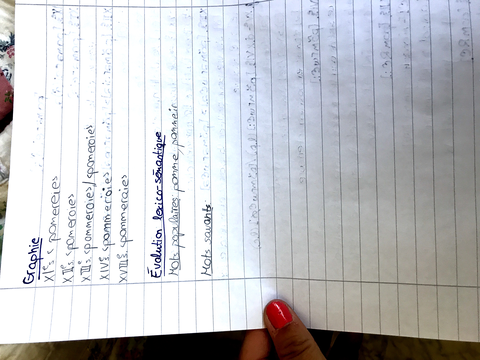 Graphie
XIe: <pomereies
XIIe: <pomeroies
XIIIe: <pommeraies/<pomeroies
XIVe: <pommeroies
XVIIIe: <pommeraies
Évolution lexico-sémantique
Mots populaires: pomme, pommier
Mots savants